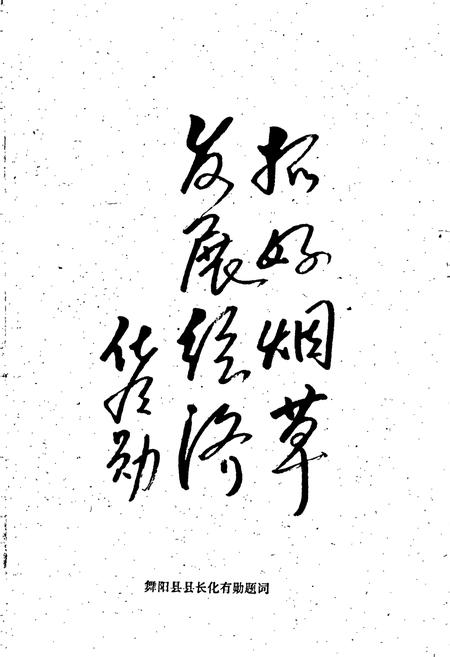 抓好烟草
发展经济
化有勋
舞阳县县长化有勋题词